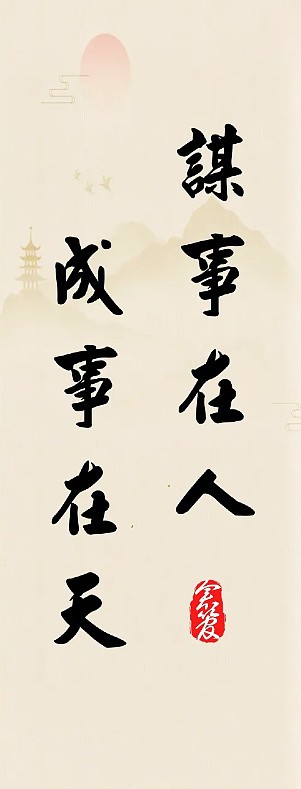 謀事在人
成事在天